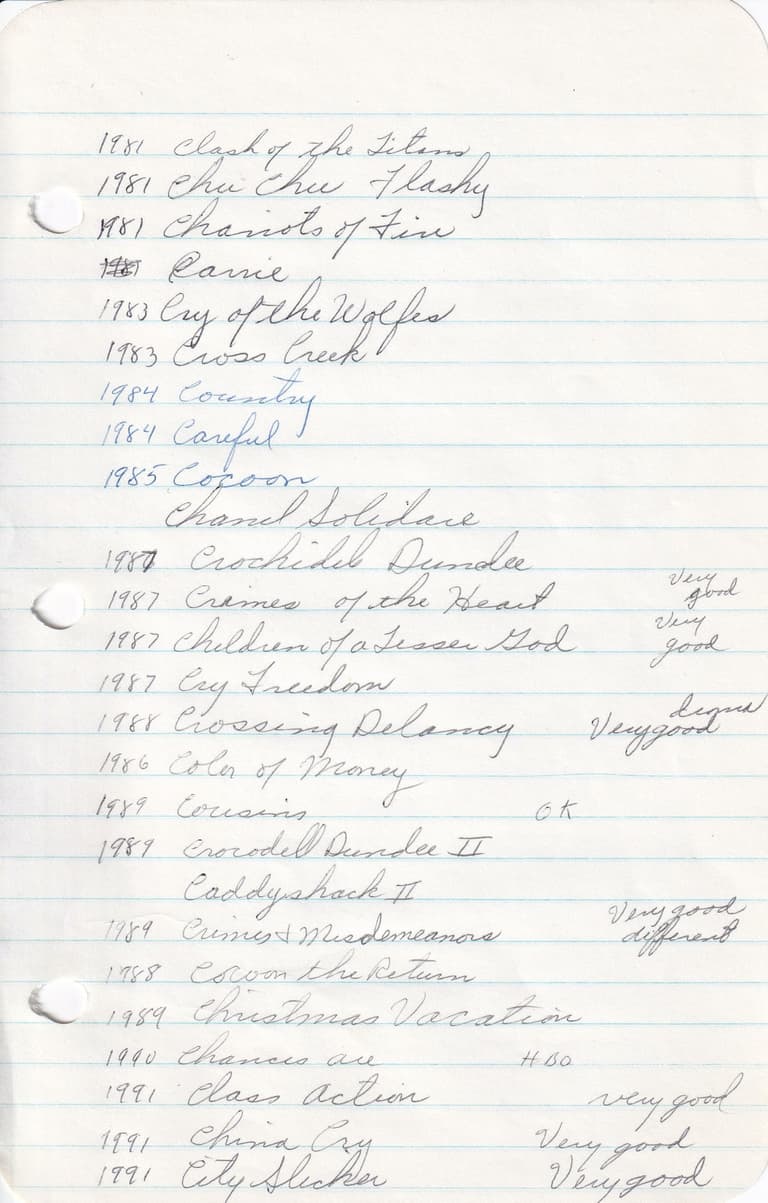 1981 Clash of the Titans
1981 Chu Chu Flashy
1981 Chariots of Fire
1981 Carrie
1983 Cry of the Wolfes
1983 Cross Creek
1984 Country
1984 Careful
1985 Cocoon
Chanel Solidare
1987 Crochidel Dundee
1987 Crimes of the Heart Very good
1987 Children of a Lesser God Very good
1987 Cry Freedom
1988 Crossing Delancy Very good
1986 Color of Money
1989 Cousins OK
1989 Crocodell Dundee II
Caddyshack II
1989 Crimes & Misdemeanors Very good different
1988 Cocoon the Return
1989 Christmas Vacation
1990 Chances are HBO
1991 Class Action very good
1991 China Cry Very good
1991 City Slicker Very good